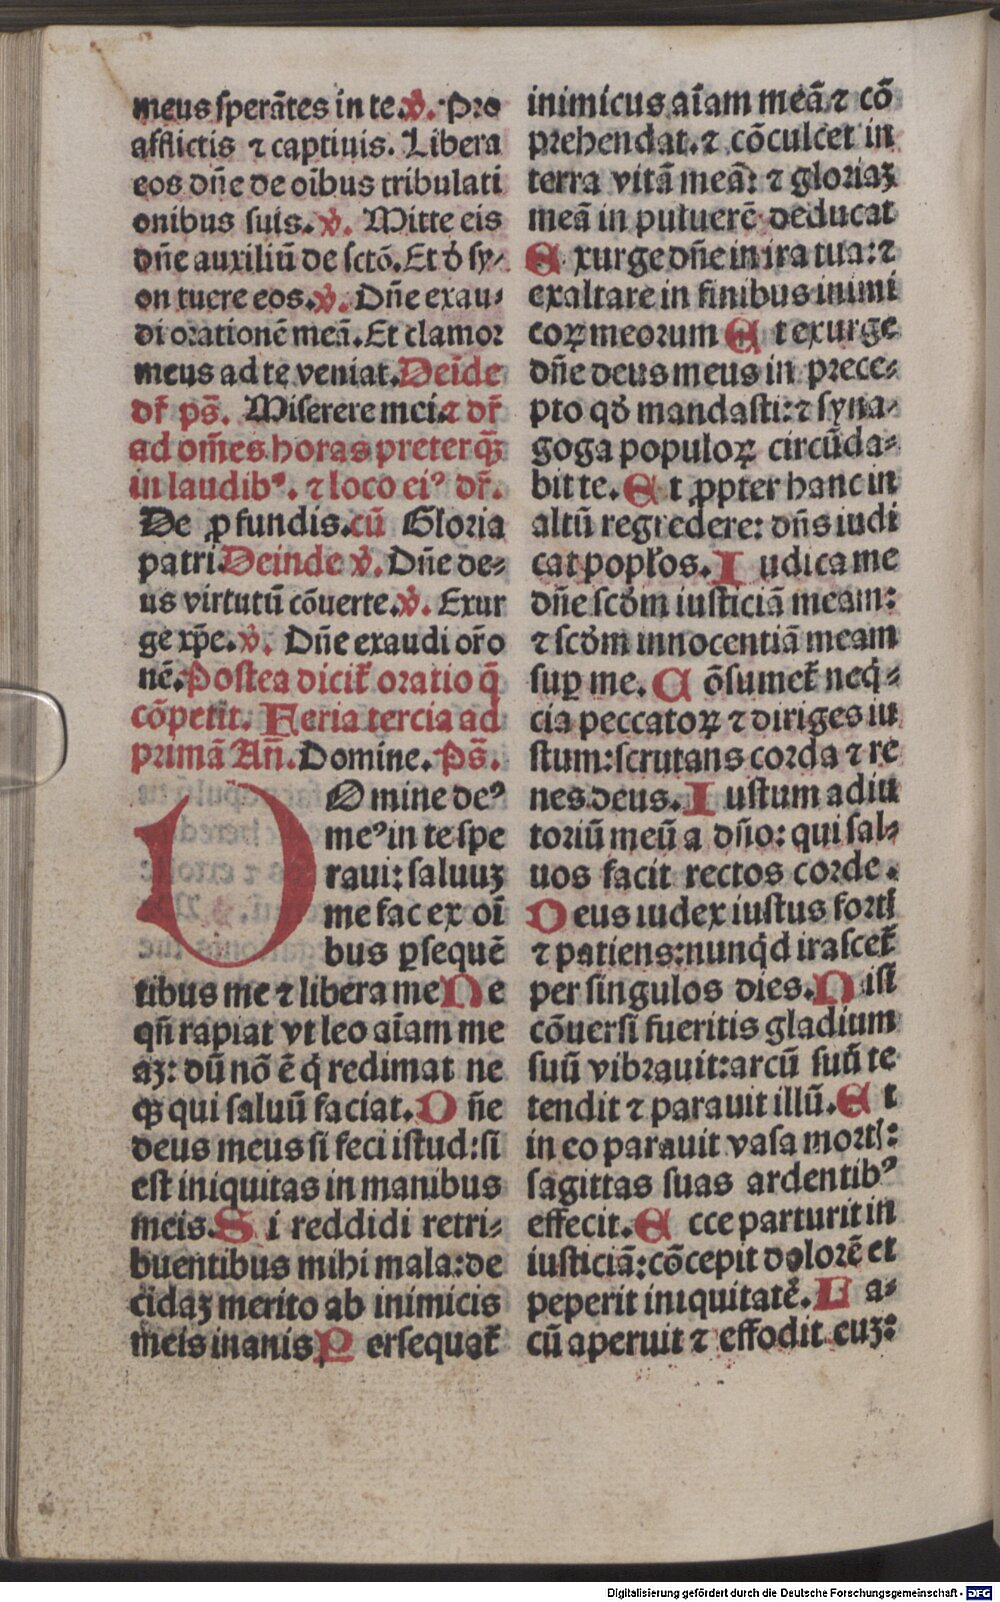 meus ſperātes in te.v̇. Pro
afflictis ⁊ captiuis. Libera
eos dn̄e de oībus tribulati
onibus ſuis.v̇. Mitte eis
dn̄e auxiliū de ſctō. Et ḋ ſy-
on tuere eos.v̇. Dn̄e exau-
di orationē meā. Et clamor
meus ad te veniat. Deīde
dr̄ ps̄. Miſerere mei. ⁊ dr̄
ad om̄es horas preterqꝫ̄
in laudibꝰ. ⁊ loco eiꝰ dr̄.
De ꝓfundis. cū Gloria
patri. Deinde v̇. Dn̄e de-
us virtutū cōuerte.v̇. Exur
ge xp̄e.v̇. Dn̄e exaudi or̄o
nē. Poſtea dicit̄ oratio q̄
cōpetit. Feria tercia ad
primā An̄. Domine. Ps̄.
DOmine deꝰ
meꝰ in te ſpe
raui: ſaluuꝫ
me fac ex oī
bus ꝑſequē
tibus me ⁊ libera me Ne
qn̄ rapiat vt leo aīam me
aꝫ: dū nō ē q̇ redimat ne
qꝫ qui ſaluū faciat. Dn̄e
deus meus ſi feci iſtud: ſi
eſt iniquitas in manibus
meis. Si reddidi retri-
buentibus mihi mala: de
cidaꝫ merito ab inimicis
meis inanis Perſequat̄
inimicus aīam meā ⁊ cō
prehendat. ⁊ cōculcet in
terra vitā meā: ⁊ gloriaꝫ
meā in puluerē deducat
Exurge dn̄e in ira tua: ⁊
exaltare in finibus inimi
coꝝ meorum Et exurge
dn̄e deus meus in prece-
pto qḋ mandaſti: ⁊ ſyna-
goga populoꝝ circūda-
bit te. Et ꝓpter hanc in
altū regredere: dn̄s iudi
cat popl̄os. Iudica me
dn̄e ſcḋm iuſticiā meam:
⁊ ſcḋm innocentiā meam
ſuꝑ me. Cōſumet̄ neq̇-
cia peccatoꝝ ⁊ diriges iu
ſtum: ſcrutans corda ⁊ re
nes deus. Iuſtum adiu
toriū meū a dn̄o: qui ſal-
uos facit rectos corde.
Deus iudex iuſtus fortꝭ
⁊ patiens: nunq̇d iraſcet̄
per ſingulos dies. Niſi
cōuerſi fueritis gladium
ſuū vibrauit: arcū ſuū te
tendit ⁊ parauit illū. Et
in eo parauit vaſa mortꝭ:
ſagittas ſuas ardentibꝰ
effecit. Ecce parturit in
iuſticiā: cōcepit dolorē et
peperit iniquitatē. La-
cū aperuit ⁊ effodit euꝫ:
Digitalisierung gefördert durch die Deutsche Forschungsgemeinschaft - DFG